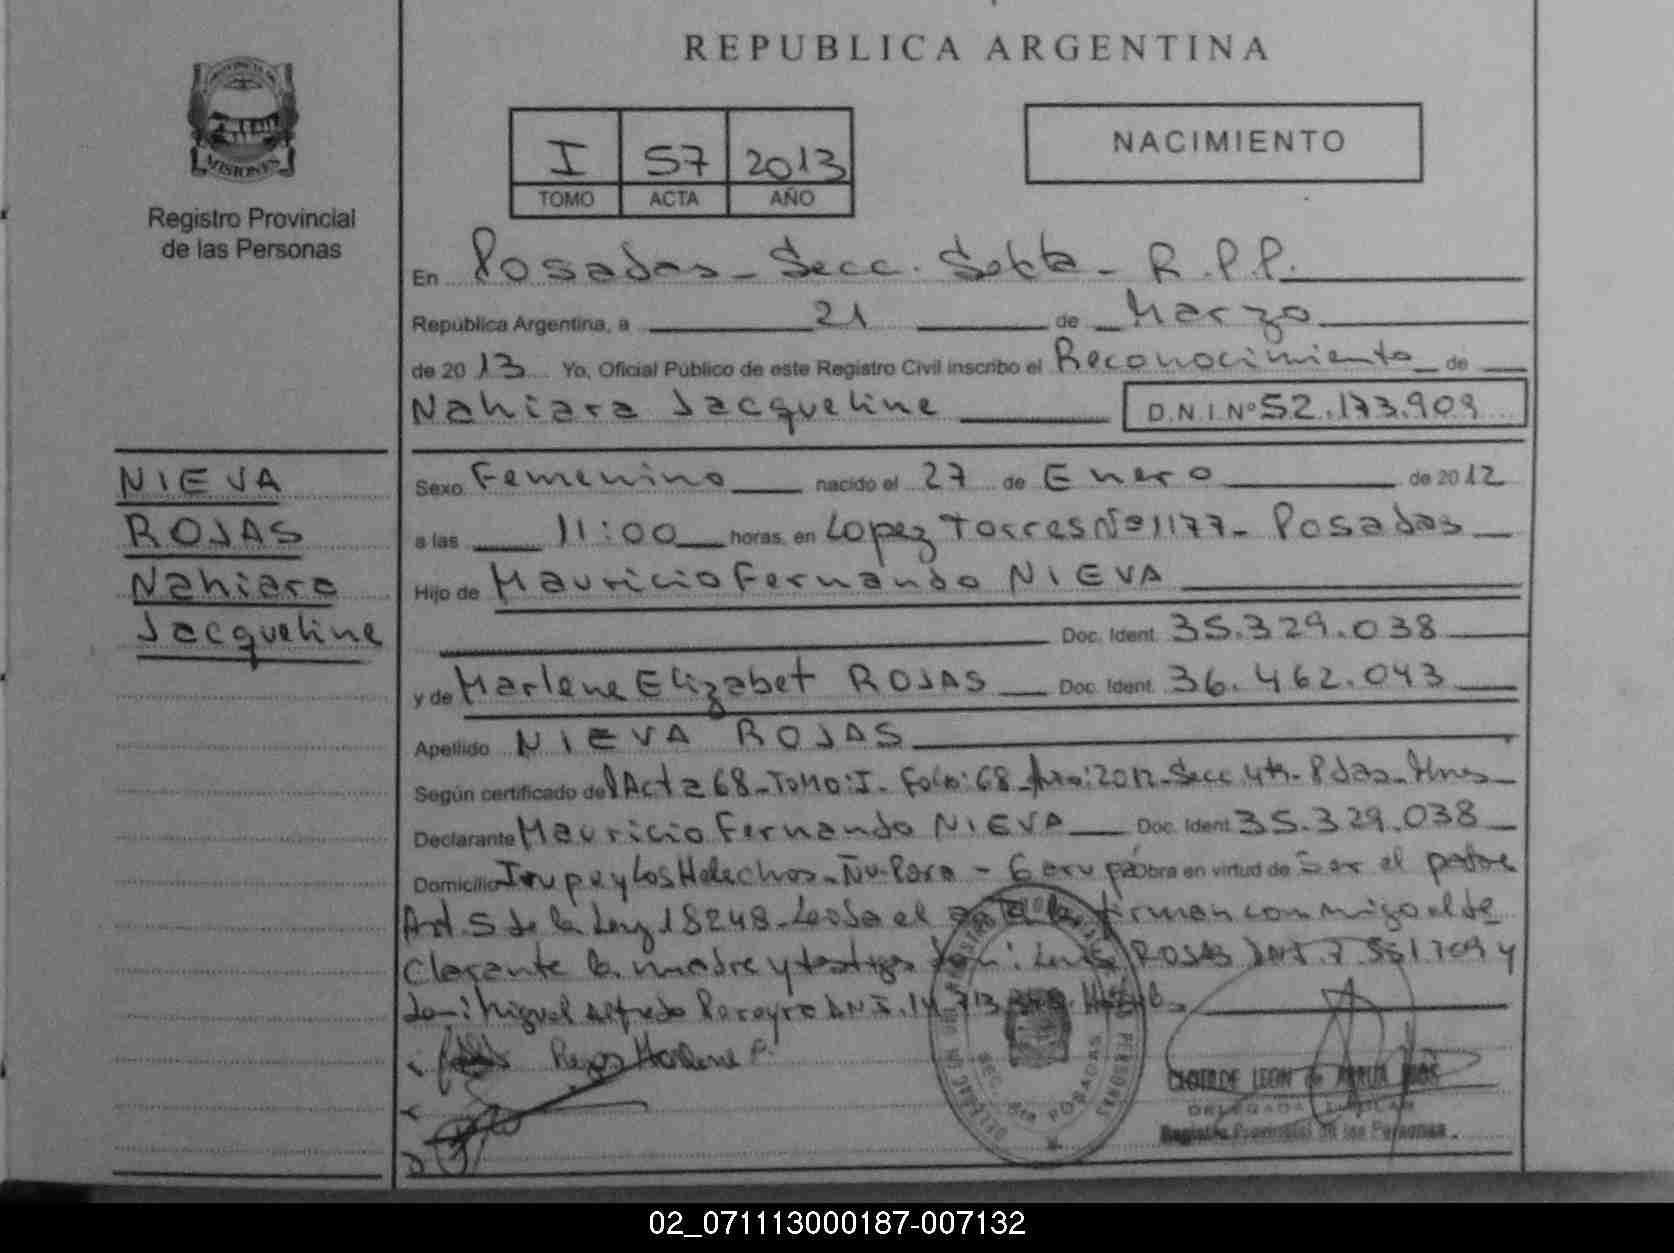 REPUBLICA ARGENTINA
PROVINCIA DE
MISIONES
Registro Provincial
de las Personas
I 57 2013
TOMO ACTA AÑO
NACIMIENTO
En Posadas - Secc. Sexta - R.P.P.
República Argentina, a 21 de Marzo
de 2013 Yo, Oficial Público de este Registro Civil inscribo el Reconocimiento de
Nahiara Jacqueline D.N.I. Nº 52.173.909
NIEVA
ROJAS
Nahiara
Jacqueline
Sexo Femenino nacido el 27 de Enero de 2012
a las 11:00 horas, en Lopez Torres Nº 1177 - Posadas
Hijo de Mauricio Fernando NIEVA
Doc. Ident. 35.329.038
y de Marlene Elizabet ROJAS Doc. Ident. 36.462.043
Apellido NIEVA ROJAS
Según certificado del Acta 68 - Tomo: I - Folio: 68 - Año: 2012 - Secc. 4ta - Pdas - Mnes
Declarante Mauricio Fernando NIEVA Doc. Ident. 35.329.038
Domicilio Irupe y Los Helechos - Ñu Pora - Garupá Obra en virtud de Ser el padre
Art. 5 de la Ley 18248 - Leida el acta la firman conmigo el de
clarante la madre y testigos Don: Luis ROJAS DNI. 7.551.709 y
don: Miguel Alfredo Pereyra DNI. 14.713.
Rojas Marlene E.
REGISTRO PROVINCIAL DE LAS PERSONAS
SEC. 6ta POSADAS
CLOTILDE LEON de
DELEGADA TITULAR
Registro Provincial de las Personas
02_071113000187-007132